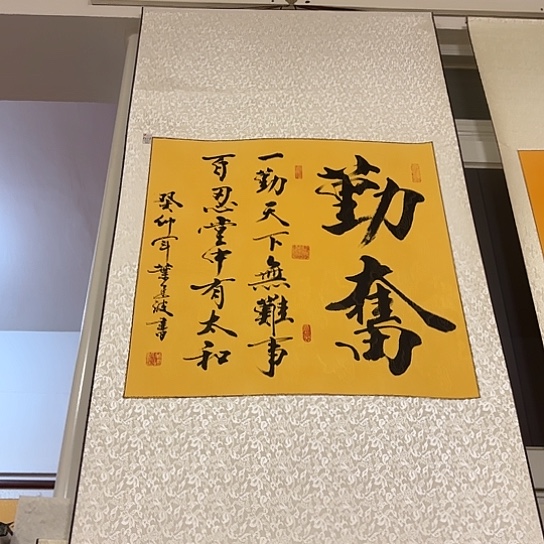 勤奮
一勤天下無難事
百忍堂中有太和
癸卯年葉連波書